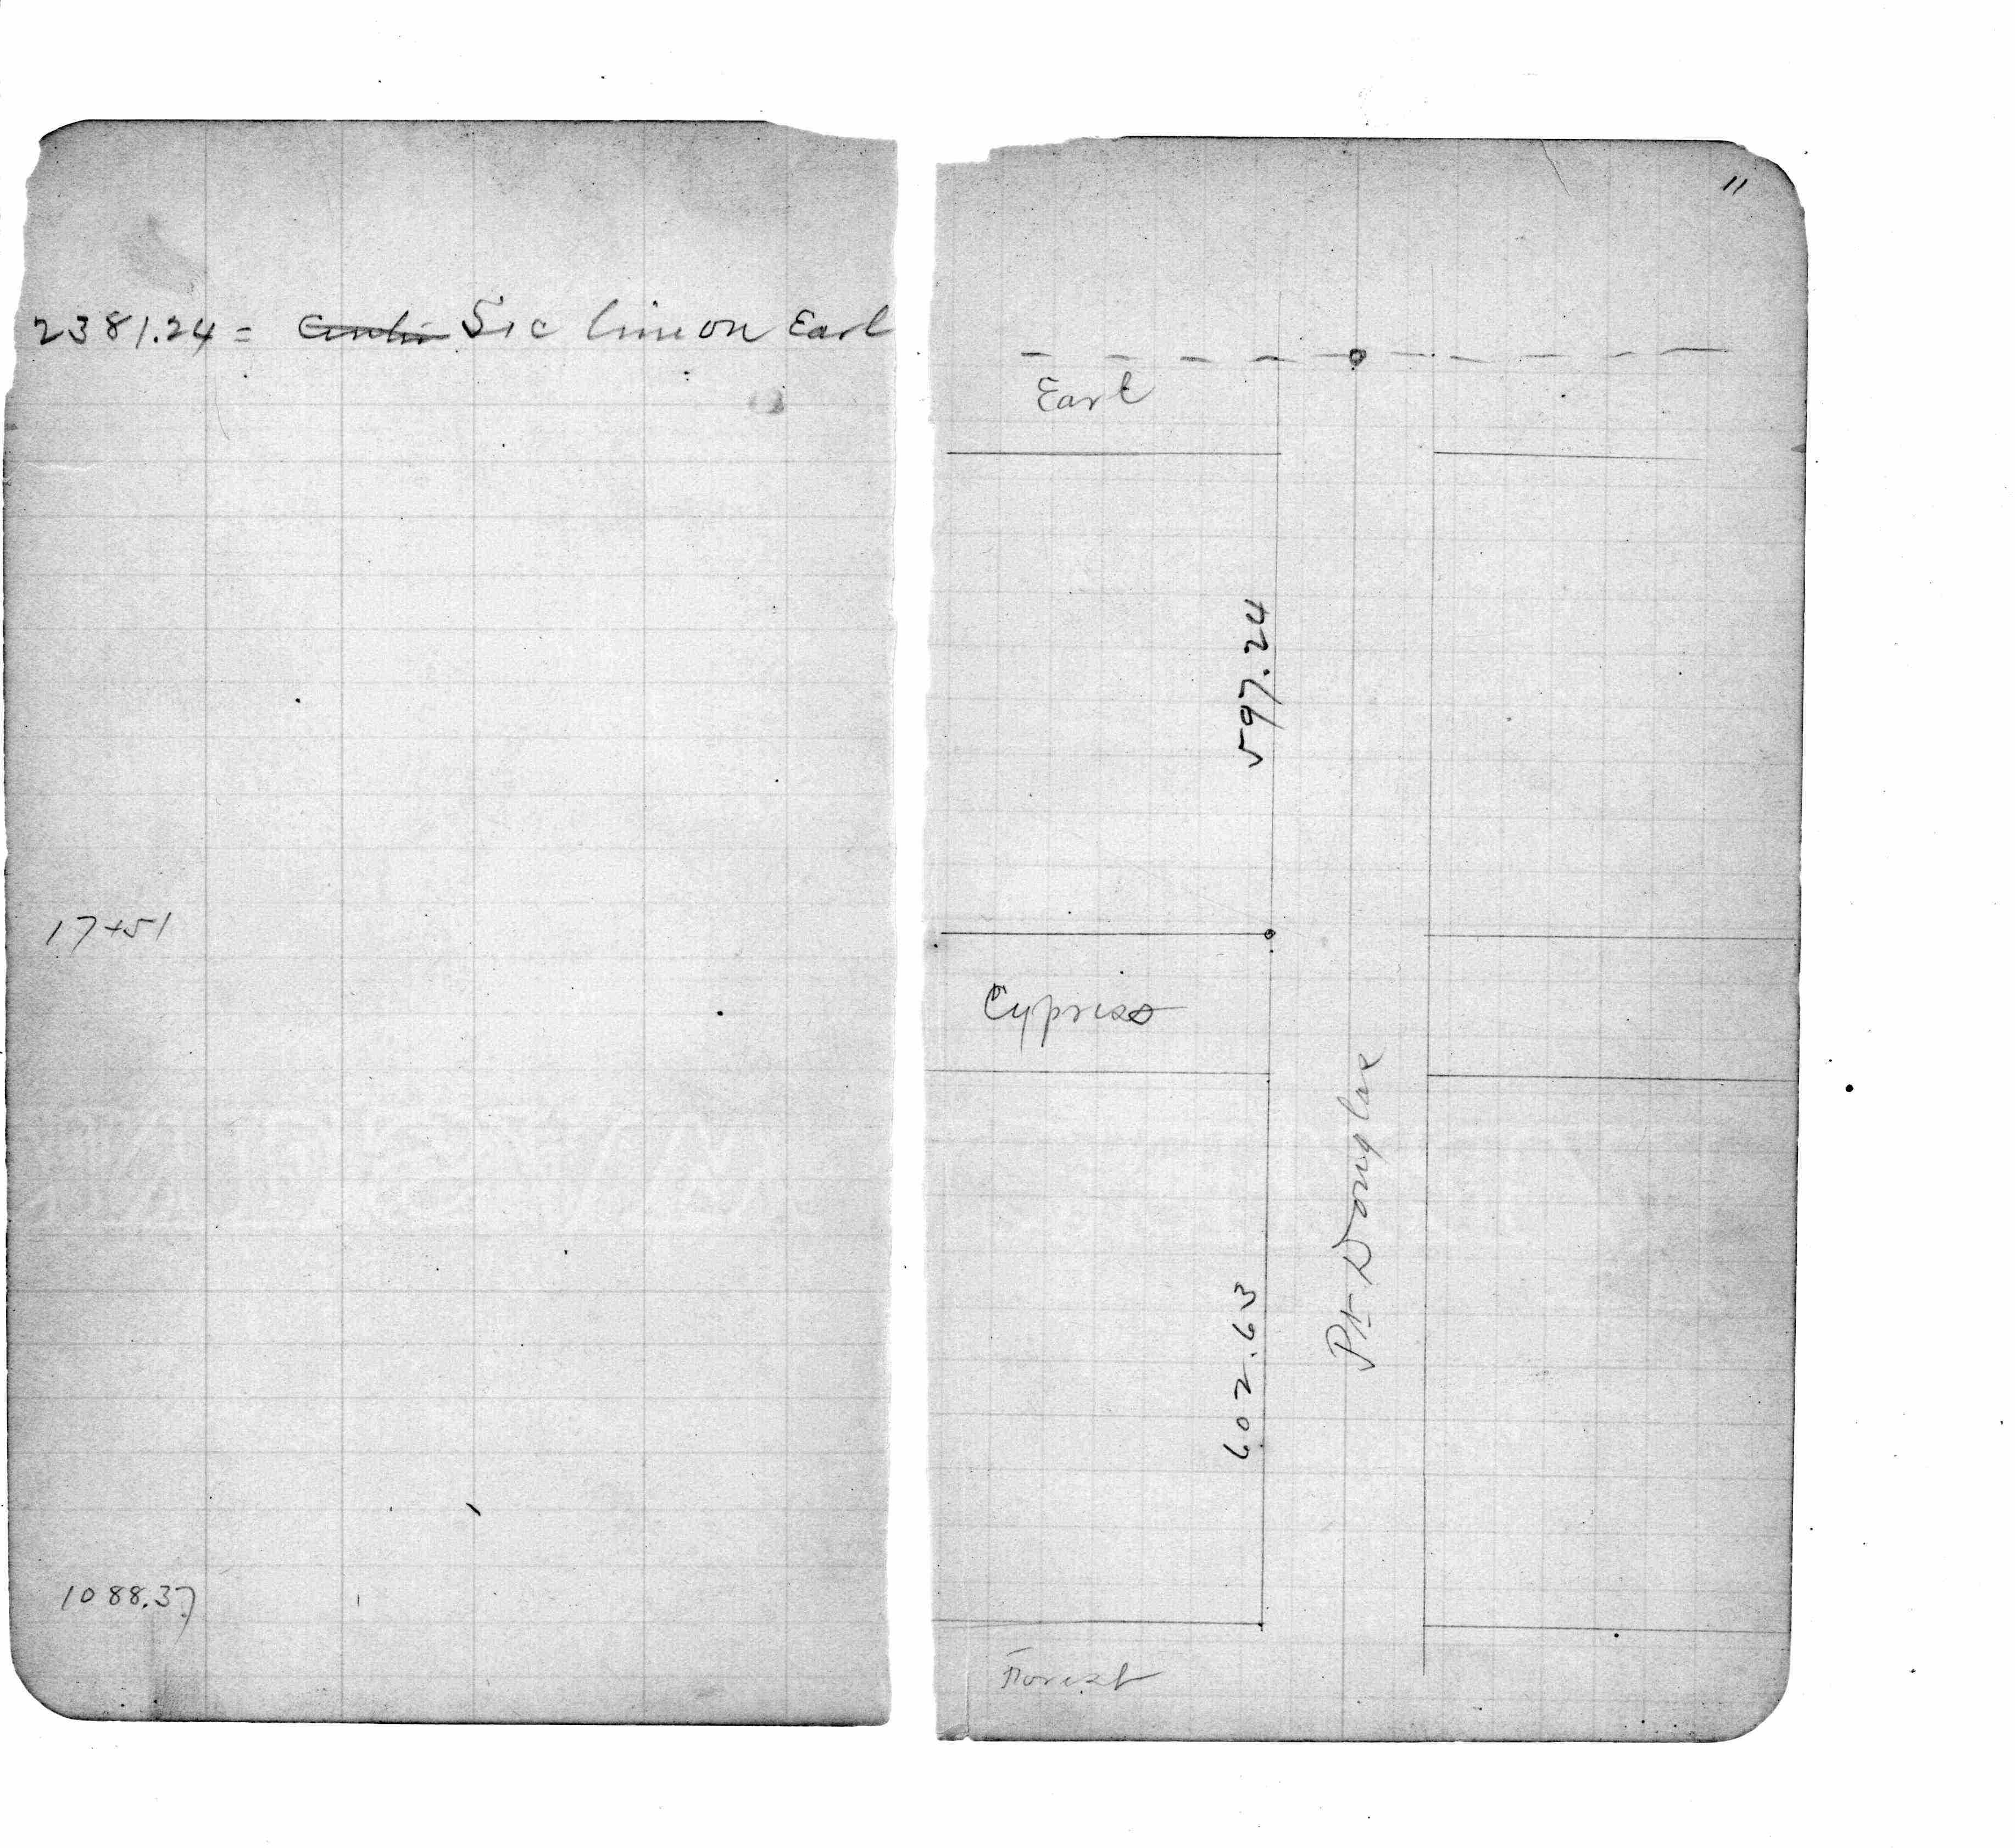 2381.24 = Sec line on Earl
17+51
1088.37
11
Earl
597.24
Cypress
Pt. Douglas
602.63
Forest